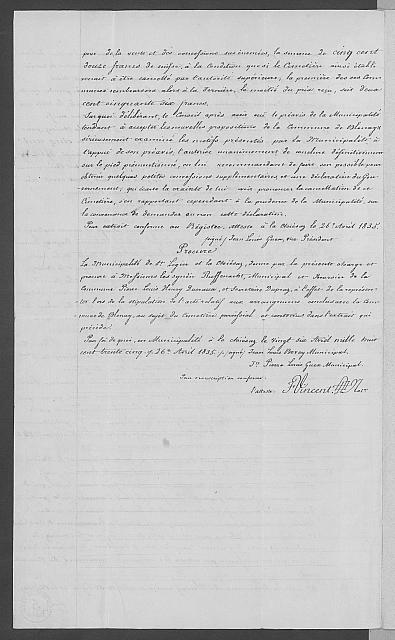 pour de la vente et des concessions sus énoncées, la somme de cinq cent
douze francs de suisse, à la condition que si le Cimetière ainsi établi
venait à être cancellé par l'autorité supérieure, la première des ces Com-
munes rembourserait alors à la dernière, la moitié du prix reçu, soit deux
cent cinquante six francs.
Sur quoi délibérant, le Conseil après avoir ouï le préavis de la Municipalité
tendant à accepter les nouvelles propositions de la Commune de Blonay
sérieusement examiné les motifs présentés par la Municipalité à
l'appui de son préavis, l'autorise unanimement de conclure définitivement
sur le pied prémentionné, en lui recommandant de faire son possible pour
obtenir quelques petites concessions supplémentaires et une déclaration du Gou-
vernement, qui écarte la crainte de lui voir prononcer la cancellation de ce
Cimetière, s'en rapportant cependant à la prudence de la Municipalité, sur
la convenance de demander ou non cette déclaration.
Pour extrait conforme au Registre, attesté à la Chiésaz, le 26e Avril 1835.
(signé) Jean Louis Guex, Vice Président
Procure
La Municipalité de St Légier et la Chiésaz, donne par la présente charge et
pouvoir à Messieurs les syndic Municipal et Boursier de la
Commune Pierre Louis Henry et Secrétaire Dupraz, à l'effet de la représen-
ter lors de la stipulation de l'acte relatif aux arrangements conclus avec la Com-
mune de Blonay, au sujet du Cimetière paroissial et contenus dans l'extrait qui
précède.
En foi de quoi, en Municipalité à la Chiésaz le vingt six Avril mille huit
cent trente cinq. 26e Avril 1835. (signé) Jean Louis Municipal.
Pierre Louis Guex Municipal.
Pour transcription conforme
l'atteste. F. Vincent Not.